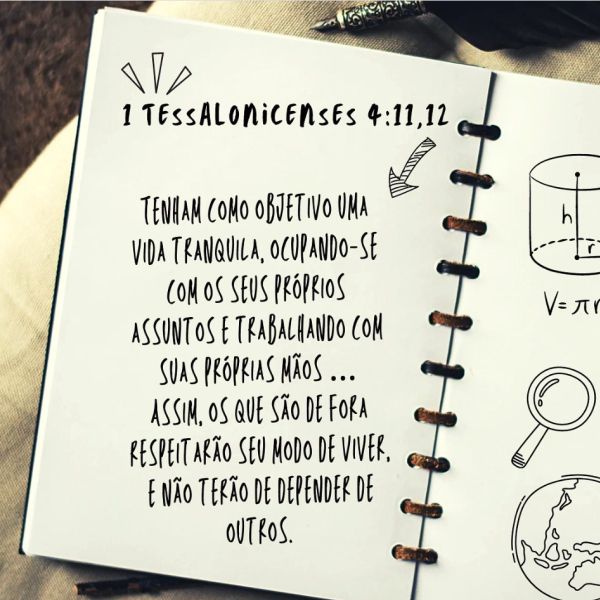 1 TESSALONICENSES 4:11,12
TENHAM COMO OBJETIVO UMA
VIDA TRANQUILA, OCUPANDO-SE
COM OS SEUS PRÓPRIOS
ASSUNTOS E TRABALHANDO COM
SUAS PRÓPRIAS MÃOS ...
ASSIM, OS QUE SÃO DE FORA
RESPEITARÃO SEU MODO DE VIVER,
E NÃO TERÃO DE DEPENDER DE
OUTROS.
h
r
V=πr